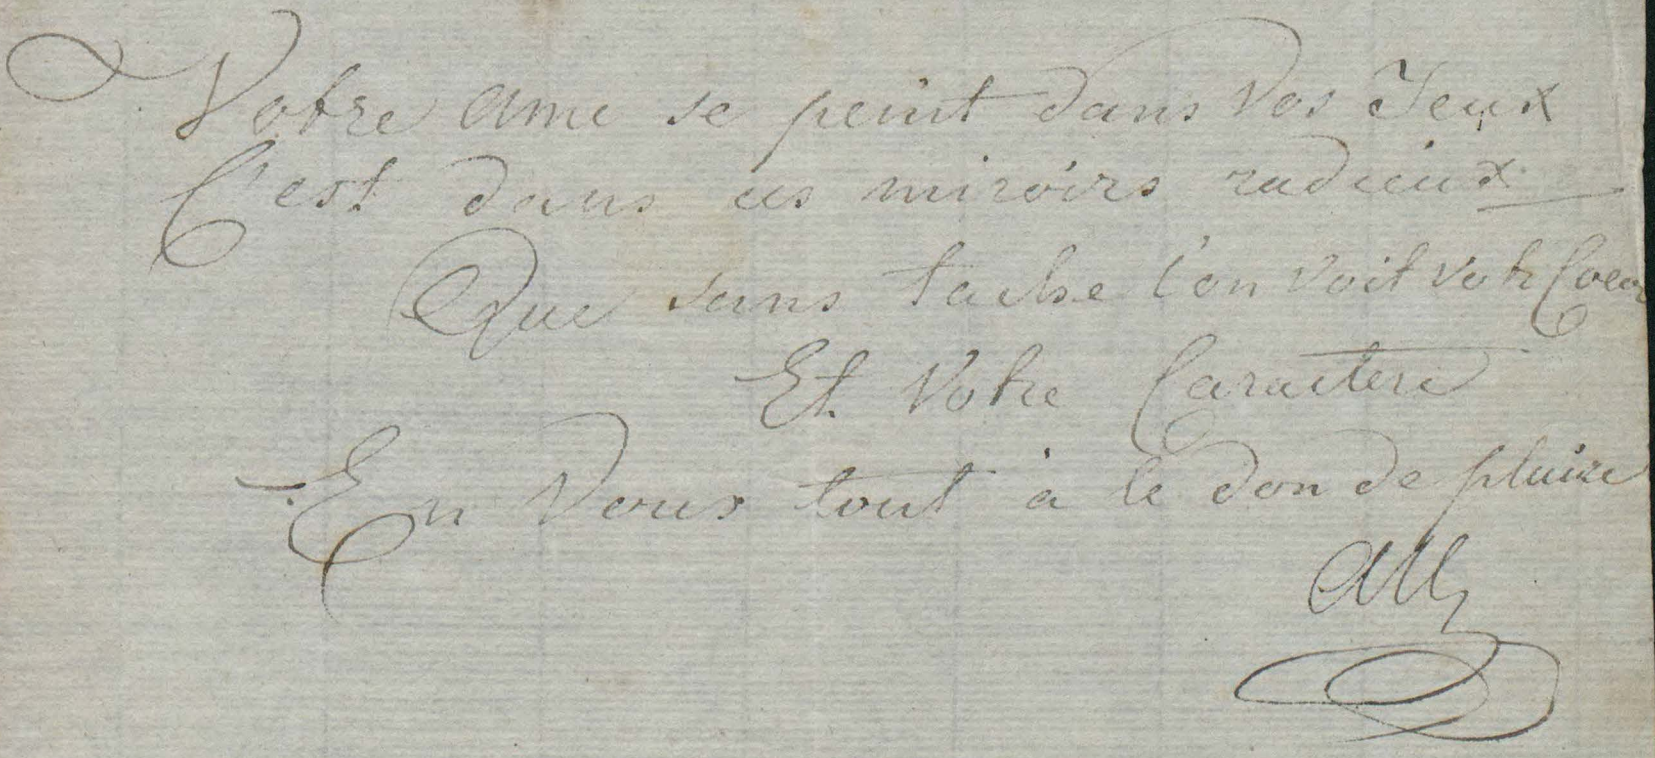 Votre ame se peint dans Vos Yeux
C'est dans ces miroirs radieux
Que sans tache l'on Voit Votr Coeur
Et Votre Caractere
En Vous tout à le don de plaire